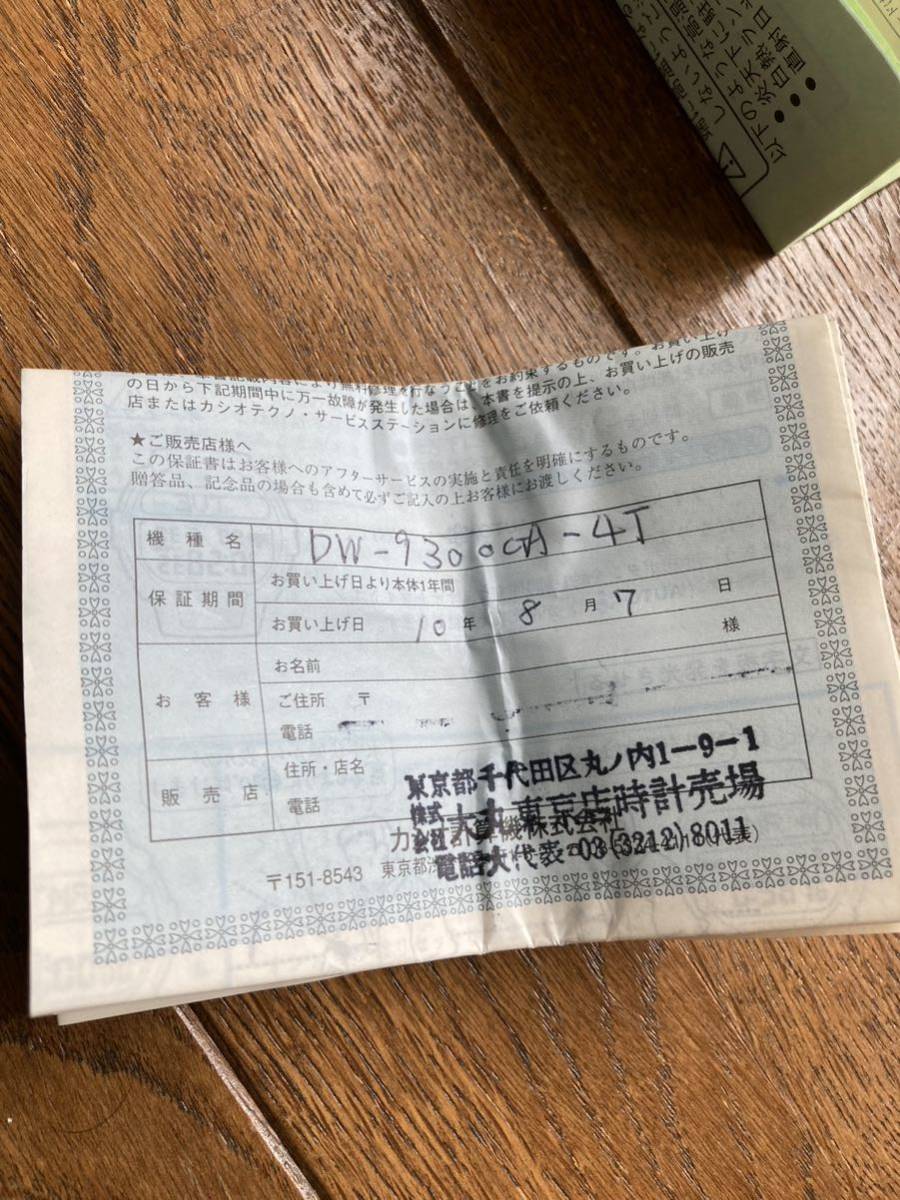 以下のような
直射日
の日から下記期間中に万一故障が発生した場合は、本書を提示の上、お買い上げの販売
店またはカシオテクノ・サービスステーションに修理をご依頼ください。
★ご販売店様へ
この保証書はお客様へのアフターサービスの実施と責任を明確にするものです。
贈答品、記念品の場合も含めて必ずご記入の上お客様にお渡しください。
機種名 DW-9300CA-4J
保証期間 お買い上げ日より本体1年間
お買い上げ日 10年 8月 7日
お客様 お名前 様
ご住所 〒
電話
販売店 住所・店名
電話
東京都千代田区丸ノ内1-9-1
株式会社大丸東京店時計売場
電話大代表 03(3212)8011
カシオ計算機株式会社
〒151-8543 東京都渋